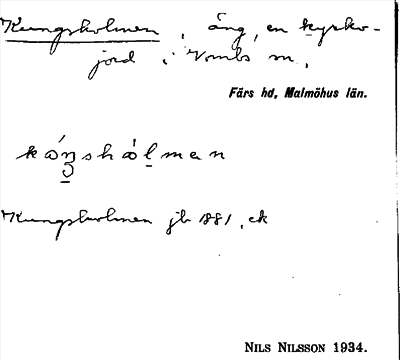 Kungsholmen, äng, en kyrko-
jord i Vombs sn.,
Färs hd, Malmöhus län.
Kungsholmen jb 1881, ek
NILS NILSSON 1934.